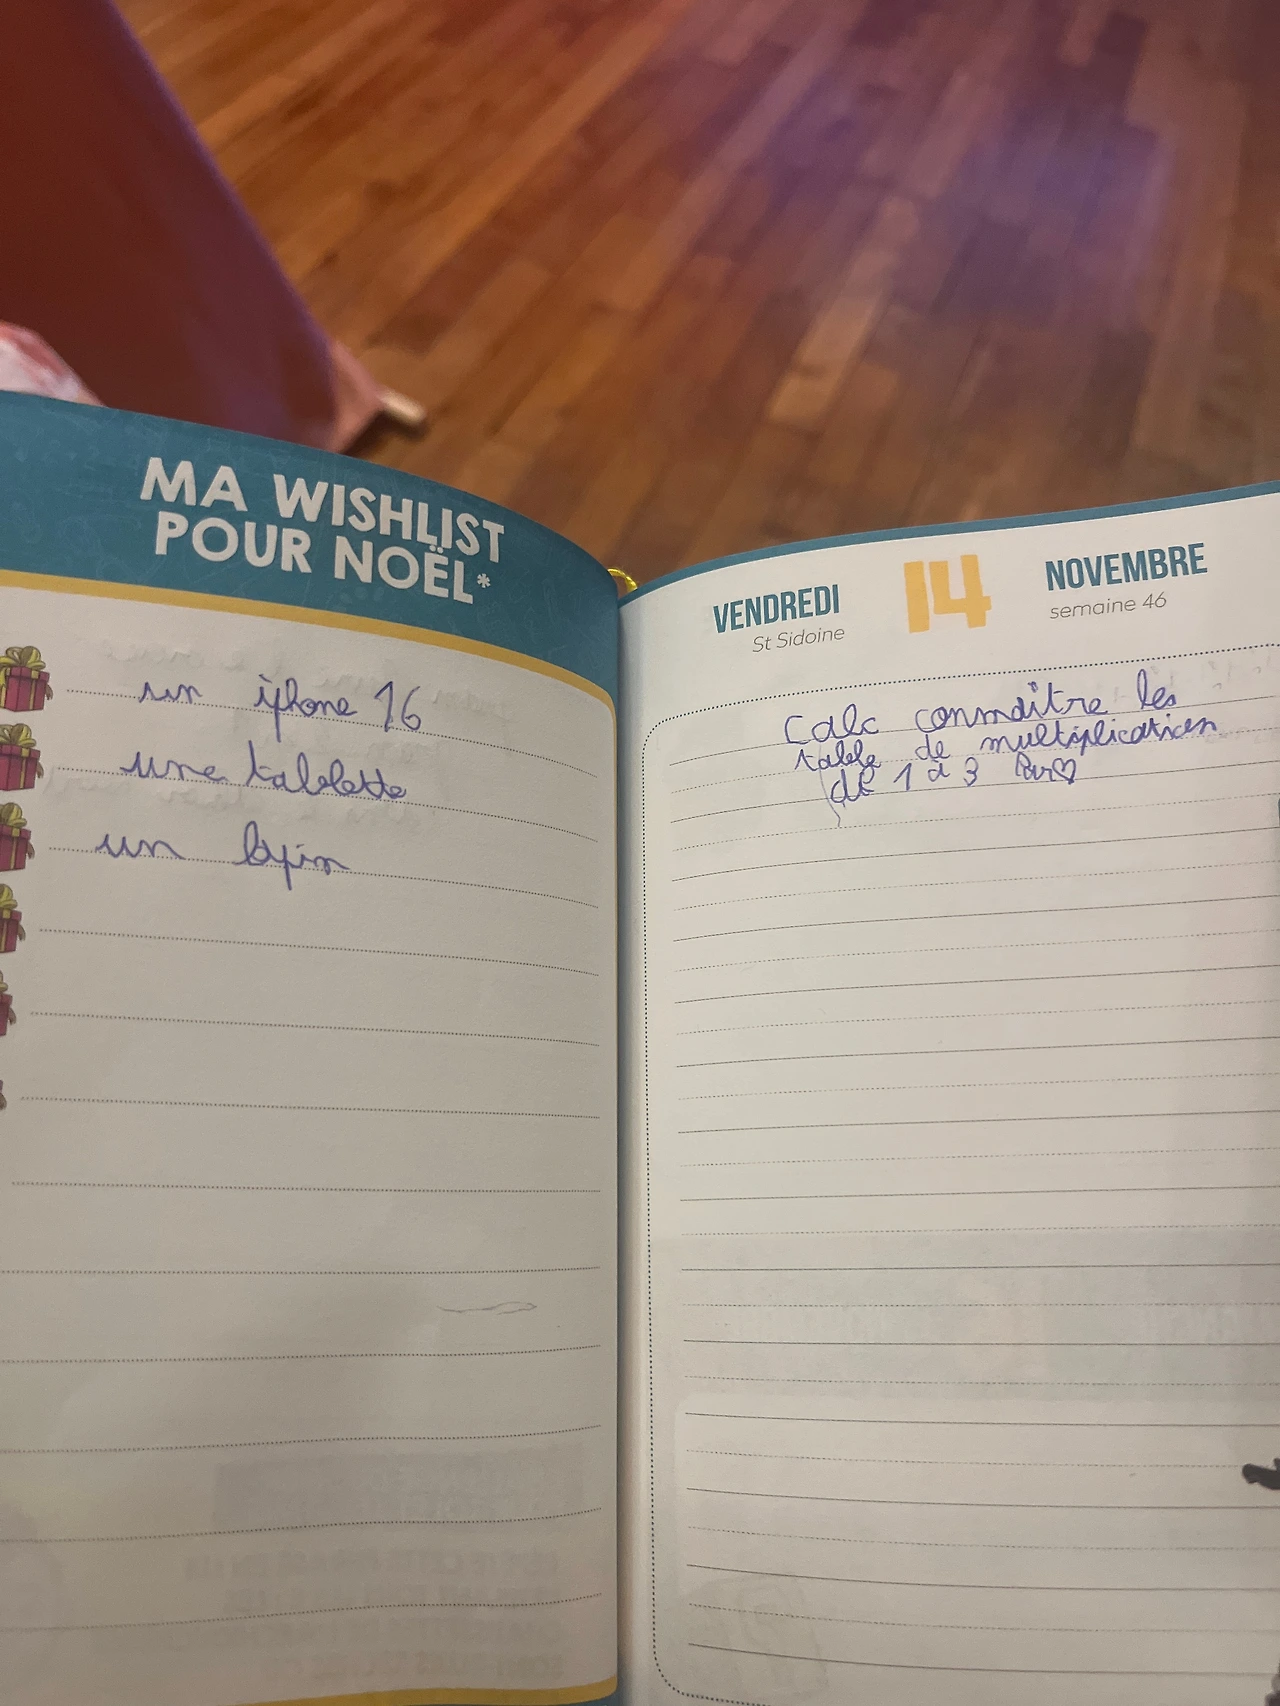 MA WISHLIST
POUR NOËL*
un iphone 16
une tablette
un lapin
VENDREDI 14 NOVEMBRE
St Sidoine semaine 46
Calc connaître les
table de multiplication
de 1 à 3 par